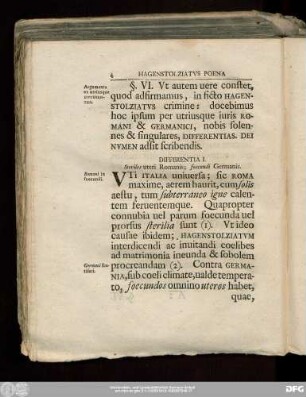 4 HAGENSTOLZIATVS POENA
§. VI. Vt autem uere constet,
quod adfirmamus, in ficto HAGEN-
STOLZIATVS crimine: docebimus
hoc ipsum per utriusque iuris RO-
MANI & GERMANICI, nobis solen-
nes & singulares, DIFFERENTIAS. DEI
NVMEN adsit scribendis.
DIFFERENTIA I.
Steriles uteri Romanis; foecundi Germanis.
Romani in-
foecundi.
VTI ITALIA uniuersa; sic ROMA
maxime, aerem haurit, cum solis
aestu, tum subterraneo igne calen-
tem feruentemque. Quapropter
connubia uel parum foecunda uel
prorsus sterilia sunt (1). Vt ideo
causae ibidem, HAGENSTOLZIATVM
interdicendi ac inuitandi coelibes
ad matrimonia ineunda & sobolem
procreandam (2). Contra GERMA-
NIA, sub coeli climate, ualde tempera-
to, foecundos omnino uteros habet,
quae,